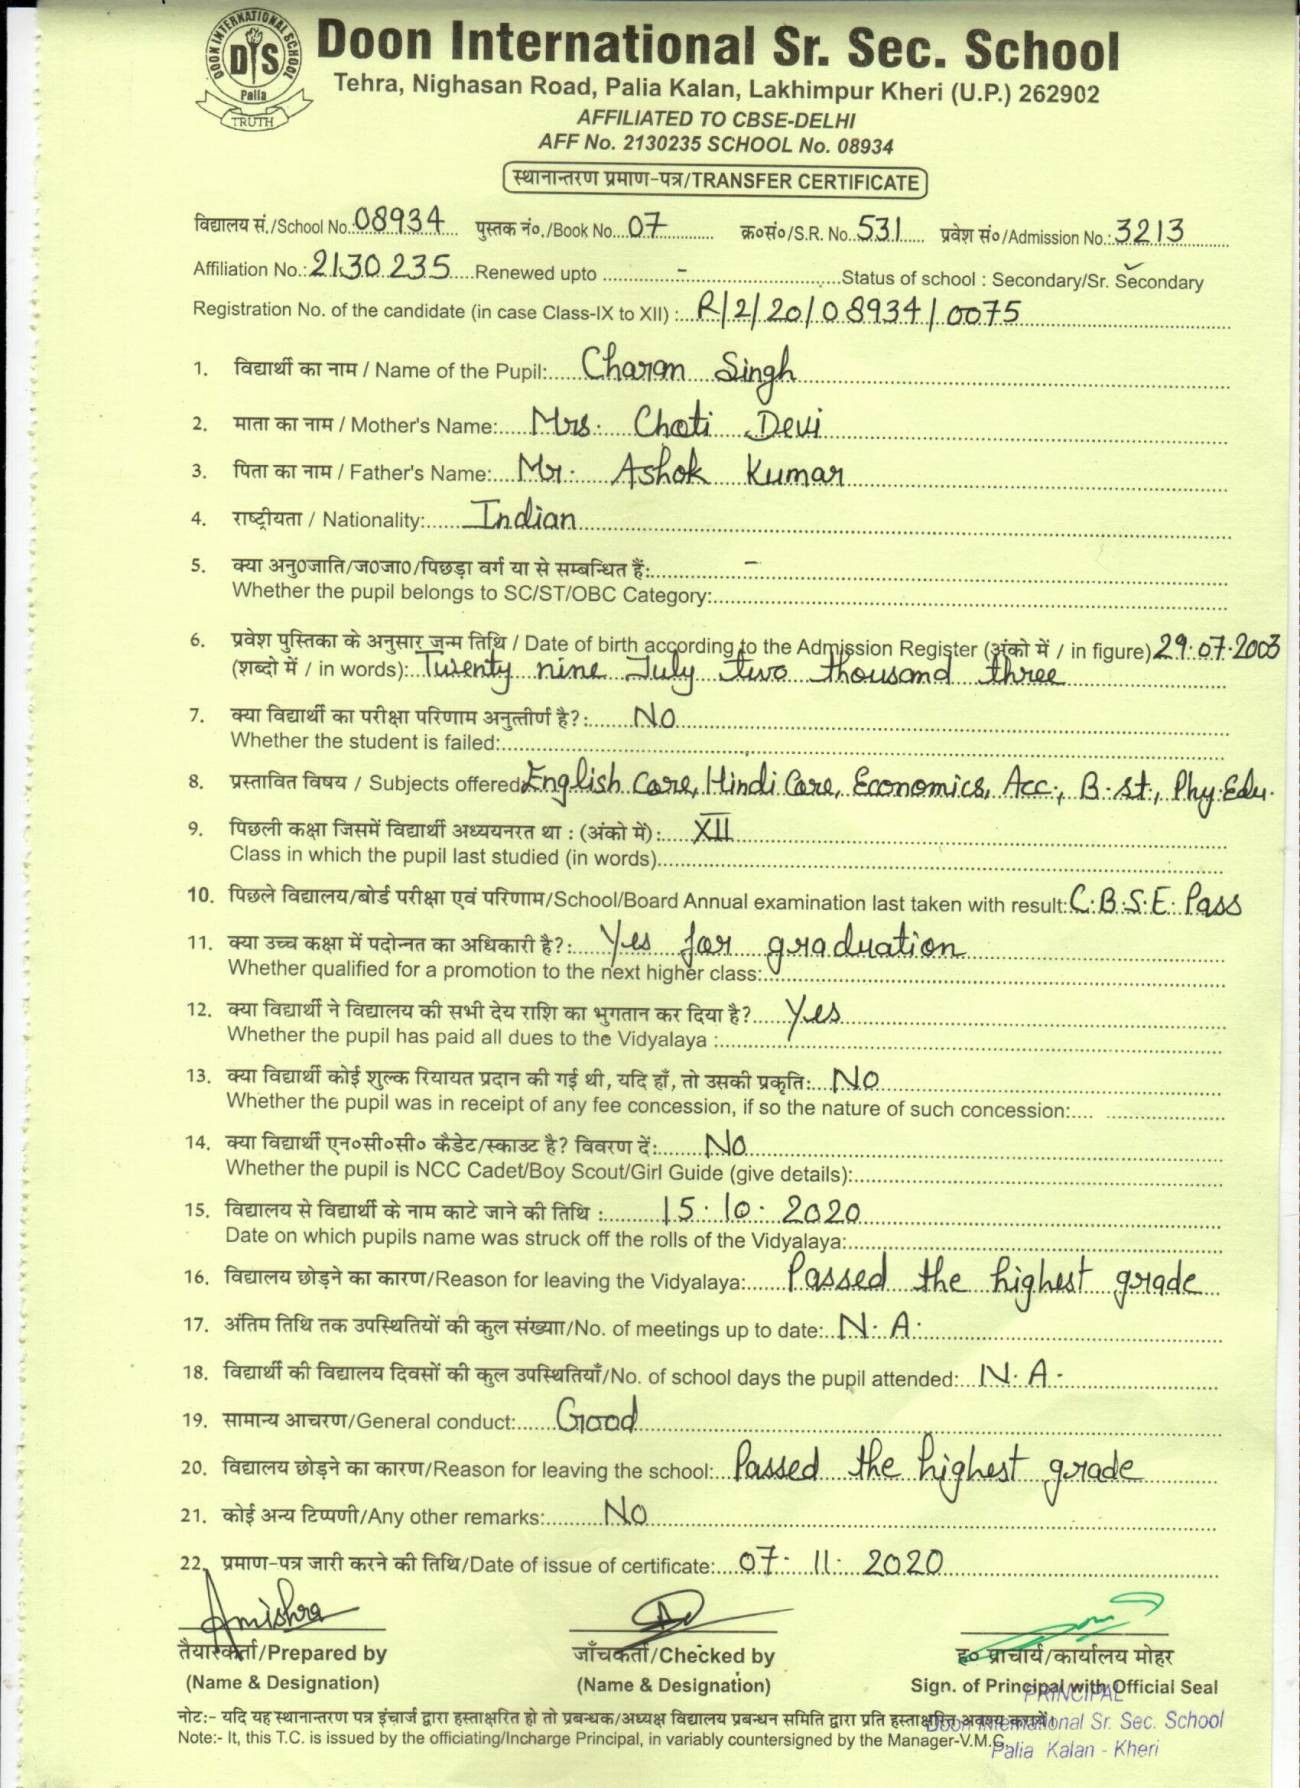 DOON INTERNATIONAL SCHOOL
DIS
Palia
TRUTH
Doon International Sr. Sec. School
Tehra, Nighasan Road, Palia Kalan, Lakhimpur Kheri (U.P.) 262902
AFFILIATED TO CBSE-DELHI
AFF No. 2130235 SCHOOL No. 08934
स्थानान्तरण प्रमाण-पत्र/TRANSFER CERTIFICATE
विद्यालय सं./School No. 08934 पुस्तक नं०./Book No. 07 क्र०सं०/S.R. No. 531 प्रवेश सं०/Admission No.: 3213
Affiliation No.: 2130235 Renewed upto - Status of school : Secondary/Sr. Secondary
Registration No. of the candidate (in case Class-IX to XII) : R/2/20/08934/0075
1. विद्यार्थी का नाम / Name of the Pupil: Charan Singh
2. माता का नाम / Mother's Name: Mrs. Choti Devi
3. पिता का नाम / Father's Name: Mr. Ashok Kumar
4. राष्ट्रीयता / Nationality: Indian
5. क्या अनु०जाति/ज०जा०/पिछड़ा वर्ग या से सम्बन्धित हैं: -
Whether the pupil belongs to SC/ST/OBC Category:
6. प्रवेश पुस्तिका के अनुसार जन्म तिथि / Date of birth according to the Admission Register (अंको में / in figure) 29.07.2003
(शब्दो में / in words): Twenty nine July two thousand three
7. क्या विद्यार्थी का परीक्षा परिणाम अनुत्तीर्ण है?: No
Whether the student is failed:
8. प्रस्तावित विषय / Subjects offered: English Core, Hindi Core, Economics, Acc., B.st., Phy.Edu.
9. पिछली कक्षा जिसमें विद्यार्थी अध्ययनरत था : (अंको में) : XII
Class in which the pupil last studied (in words)
10. पिछले विद्यालय/बोर्ड परीक्षा एवं परिणाम/School/Board Annual examination last taken with result: C.B.S.E. Pass
11. क्या उच्च कक्षा में पदोन्नत का अधिकारी है?: Yes for graduation
Whether qualified for a promotion to the next higher class:
12. क्या विद्यार्थी ने विद्यालय की सभी देय राशि का भुगतान कर दिया है? Yes
Whether the pupil has paid all dues to the Vidyalaya :
13. क्या विद्यार्थी कोई शुल्क रियायत प्रदान की गई थी, यदि हाँ, तो उसकी प्रकृति: No
Whether the pupil was in receipt of any fee concession, if so the nature of such concession:
14. क्या विद्यार्थी एन०सी०सी० कैडेट/स्काउट है? विवरण दें: No
Whether the pupil is NCC Cadet/Boy Scout/Girl Guide (give details):
15. विद्यालय से विद्यार्थी के नाम काटे जाने की तिथि : 15.10.2020
Date on which pupils name was struck off the rolls of the Vidyalaya:
16. विद्यालय छोड़ने का कारण/Reason for leaving the Vidyalaya: Passed the highest grade
17. अंतिम तिथि तक उपस्थितियों की कुल संख्या/No. of meetings up to date: N.A.
18. विद्यार्थी की विद्यालय दिवसों की कुल उपस्थितियाँ/No. of school days the pupil attended: N.A.
19. सामान्य आचरण/General conduct: Good
20. विद्यालय छोड़ने का कारण/Reason for leaving the school: Passed the highest grade
21. कोई अन्य टिप्पणी/Any other remarks: No
22. प्रमाण-पत्र जारी करने की तिथि/Date of issue of certificate: 07.11.2020
Amishra
तैयारकर्ता/Prepared by जाँचकर्ता/Checked by ह० प्राचार्य/कार्यालय मोहर
(Name & Designation) (Name & Designation) Sign. of Principal with Official Seal
PRINCIPAL
नोट:- यदि यह स्थानान्तरण पत्र इंचार्ज द्वारा हस्ताक्षरित हो तो प्रबन्धक/अध्यक्ष विद्यालय प्रबन्धन समिति द्वारा प्रति हस्ताक्षरित अवश्य करायें।
Doon International Sr. Sec. School
Note:- It, this T.C. is issued by the officiating/Incharge Principal, in variably countersigned by the Manager-V.M.C.
Palia Kalan - Kheri